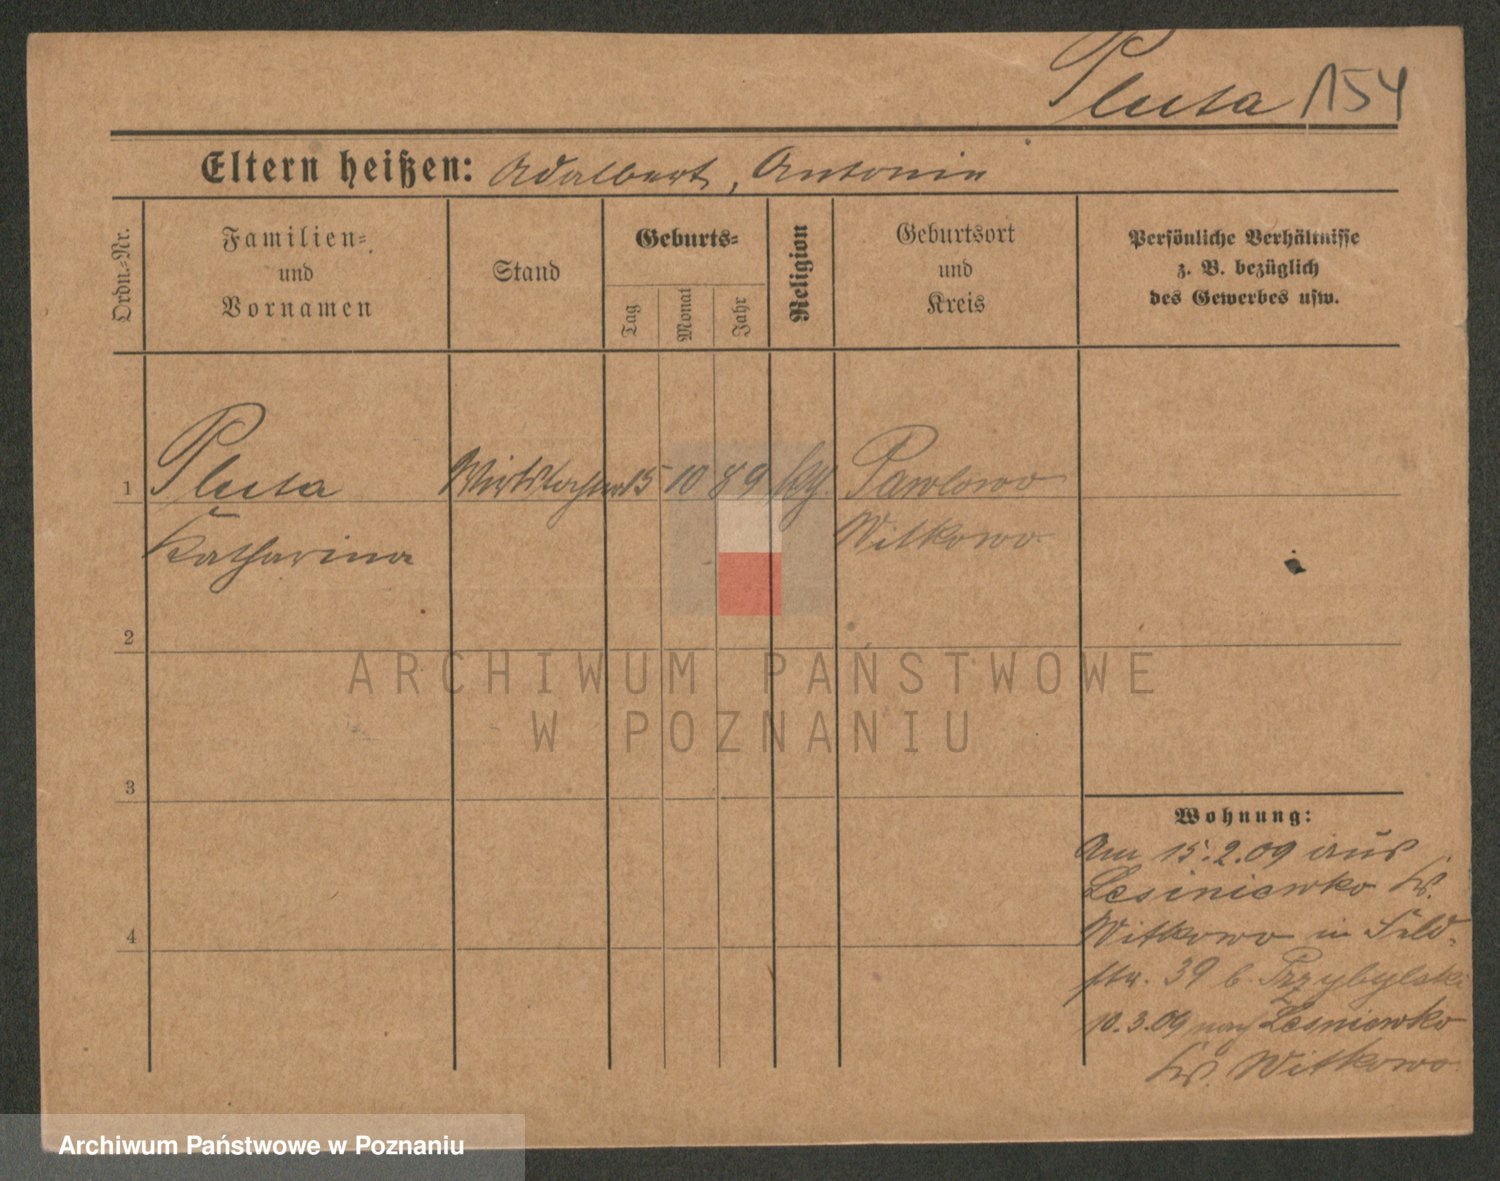 Pluta 154
Eltern heißen: Adalbert, Antonie
Ordn.-Nr.
Familien-
und
Vornamen
Stand
Geburts-
Tag
Monat
Jahr
Religion
Geburtsort
und
Kreis
Persönliche Verhältnisse
z. B. bezüglich
des Gewerbes usw.
1 Pluta Wirtstochter 15 10 89 Pawlowo
Katharina Witkowo
2
ARCHIWUM PAŃSTWOWE
W POZNANIU
3
Wohnung:
Am 15.2.09 aus
Lesiniewko Kr.
4
Witkowo in Feld-
str. 39 b. Przybylski
10.3.09 nach Lesniewko
Kr. Witkowo
Archiwum Państwowe w Poznaniu